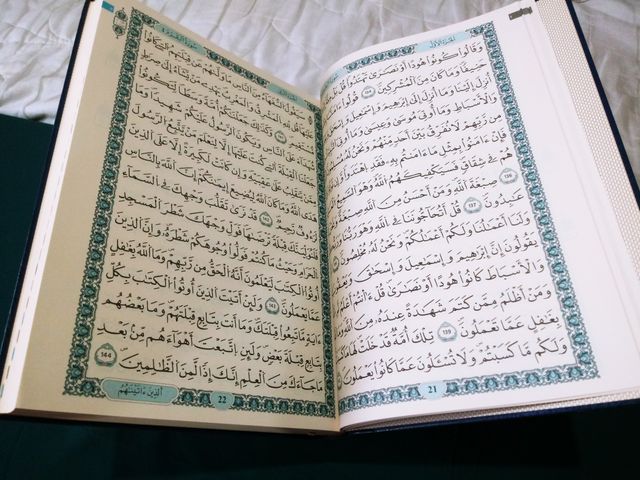 الجزء الأول
وَقَالُوا۟ كُونُوا۟ هُودًا أَوْ نَصَـٰرَىٰ تَهْتَدُوا۟ قُلْ
حَنِيفًا وَمَا كَانَ مِنَ ٱلْمُشْرِكِينَ قُولُوٓا۟
أُنزِلَ إِلَيْنَا وَمَآ أُنزِلَ إِلَىٰٓ إِبْرَٰهِـۧمَ وَإِسْمَـٰعِيلَ
وَٱلْأَسْبَاطِ وَمَآ أُوتِىَ مُوسَىٰ وَعِيسَىٰ وَمَآ أُوتِىَ
مِن رَّبِّهِمْ لَا نُفَرِّقُ بَيْنَ أَحَدٍ مِّنْهُمْ وَنَحْنُ
فَإِنْ ءَامَنُوا۟ بِمِثْلِ مَآ ءَامَنتُم بِهِۦ فَقَدِ ٱهْتَدَوا۟
هُمْ فِى شِقَاقٍ فَسَيَكْفِيكَهُمُ ٱللَّهُ وَهُوَ ٱلسَّمِيعُ
صِبْغَةَ ٱللَّهِ وَمَنْ أَحْسَنُ مِنَ ٱللَّهِ صِبْغَةً
عَـٰبِدُونَ قُلْ أَتُحَآجُّونَنَا فِى ٱللَّهِ وَهُوَ
وَلَنَآ أَعْمَـٰلُنَا وَلَكُمْ أَعْمَـٰلُكُمْ وَنَحْنُ لَهُۥ مُخْلِصُونَ
يَقُولُونَ إِنَّ إِبْرَٰهِـۧمَ وَإِسْمَـٰعِيلَ وَإِسْحَـٰقَ وَيَعْقُوبَ
وَٱلْأَسْبَاطَ كَانُوا۟ هُودًا أَوْ نَصَـٰرَىٰ قُلْ ءَأَنتُمْ أَعْلَمُ
وَمَنْ أَظْلَمُ مِمَّن كَتَمَ شَهَـٰدَةً عِندَهُۥ مِنَ ٱللَّهِ
بِغَـٰفِلٍ عَمَّا تَعْمَلُونَ تِلْكَ أُمَّةٌ قَدْ خَلَتْ لَهَا مَا
وَلَكُم مَّا كَسَبْتُمْ وَلَا تُسْـَٔلُونَ عَمَّا كَانُوا۟ يَعْمَلُونَ
21
سورة البقرة
سَيَقُولُ ٱلسُّفَهَآءُ مِنَ ٱلنَّاسِ مَا وَلَّىٰهُمْ عَن قِبْلَتِهِمُ ٱلَّتِى كَانُوا۟
عَلَيْهَا قُل لِّلَّهِ ٱلْمَشْرِقُ وَٱلْمَغْرِبُ يَهْدِى مَن يَشَآءُ إِلَىٰ صِرَٰطٍ
مُّسْتَقِيمٍ وَكَذَٰلِكَ جَعَلْنَـٰكُمْ أُمَّةً وَسَطًا لِّتَكُونُوا۟
شُهَدَآءَ عَلَى ٱلنَّاسِ وَيَكُونَ ٱلرَّسُولُ عَلَيْكُمْ شَهِيدًا وَمَا
جَعَلْنَا ٱلْقِبْلَةَ ٱلَّتِى كُنتَ عَلَيْهَآ إِلَّا لِنَعْلَمَ مَن يَتَّبِعُ ٱلرَّسُولَ
مِمَّن يَنقَلِبُ عَلَىٰ عَقِبَيْهِ وَإِن كَانَتْ لَكَبِيرَةً إِلَّا عَلَى ٱلَّذِينَ
هَدَى ٱللَّهُ وَمَا كَانَ ٱللَّهُ لِيُضِيعَ إِيمَـٰنَكُمْ إِنَّ ٱللَّهَ بِٱلنَّاسِ
لَرَءُوفٌ رَّحِيمٌ قَدْ نَرَىٰ تَقَلُّبَ وَجْهِكَ فِى ٱلسَّمَآءِ
فَلَنُوَلِّيَنَّكَ قِبْلَةً تَرْضَىٰهَا فَوَلِّ وَجْهَكَ شَطْرَ ٱلْمَسْجِدِ
ٱلْحَرَامِ وَحَيْثُ مَا كُنتُمْ فَوَلُّوا۟ وُجُوهَكُمْ شَطْرَهُۥ وَإِنَّ ٱلَّذِينَ
أُوتُوا۟ ٱلْكِتَـٰبَ لَيَعْلَمُونَ أَنَّهُ ٱلْحَقُّ مِن رَّبِّهِمْ وَمَا ٱللَّهُ بِغَـٰفِلٍ
عَمَّا يَعْمَلُونَ وَلَئِنْ أَتَيْتَ ٱلَّذِينَ أُوتُوا۟ ٱلْكِتَـٰبَ بِكُلِّ
ءَايَةٍ مَّا تَبِعُوا۟ قِبْلَتَكَ وَمَآ أَنتَ بِتَابِعٍ قِبْلَتَهُمْ وَمَا بَعْضُهُم
بِتَابِعٍ قِبْلَةَ بَعْضٍ وَلَئِنِ ٱتَّبَعْتَ أَهْوَآءَهُم مِّنۢ بَعْدِ
مَا جَآءَكَ مِنَ ٱلْعِلْمِ إِنَّكَ إِذًا لَّمِنَ ٱلظَّـٰلِمِينَ 144
22
ٱلَّذِينَ ءَاتَيْنَـٰهُمُ